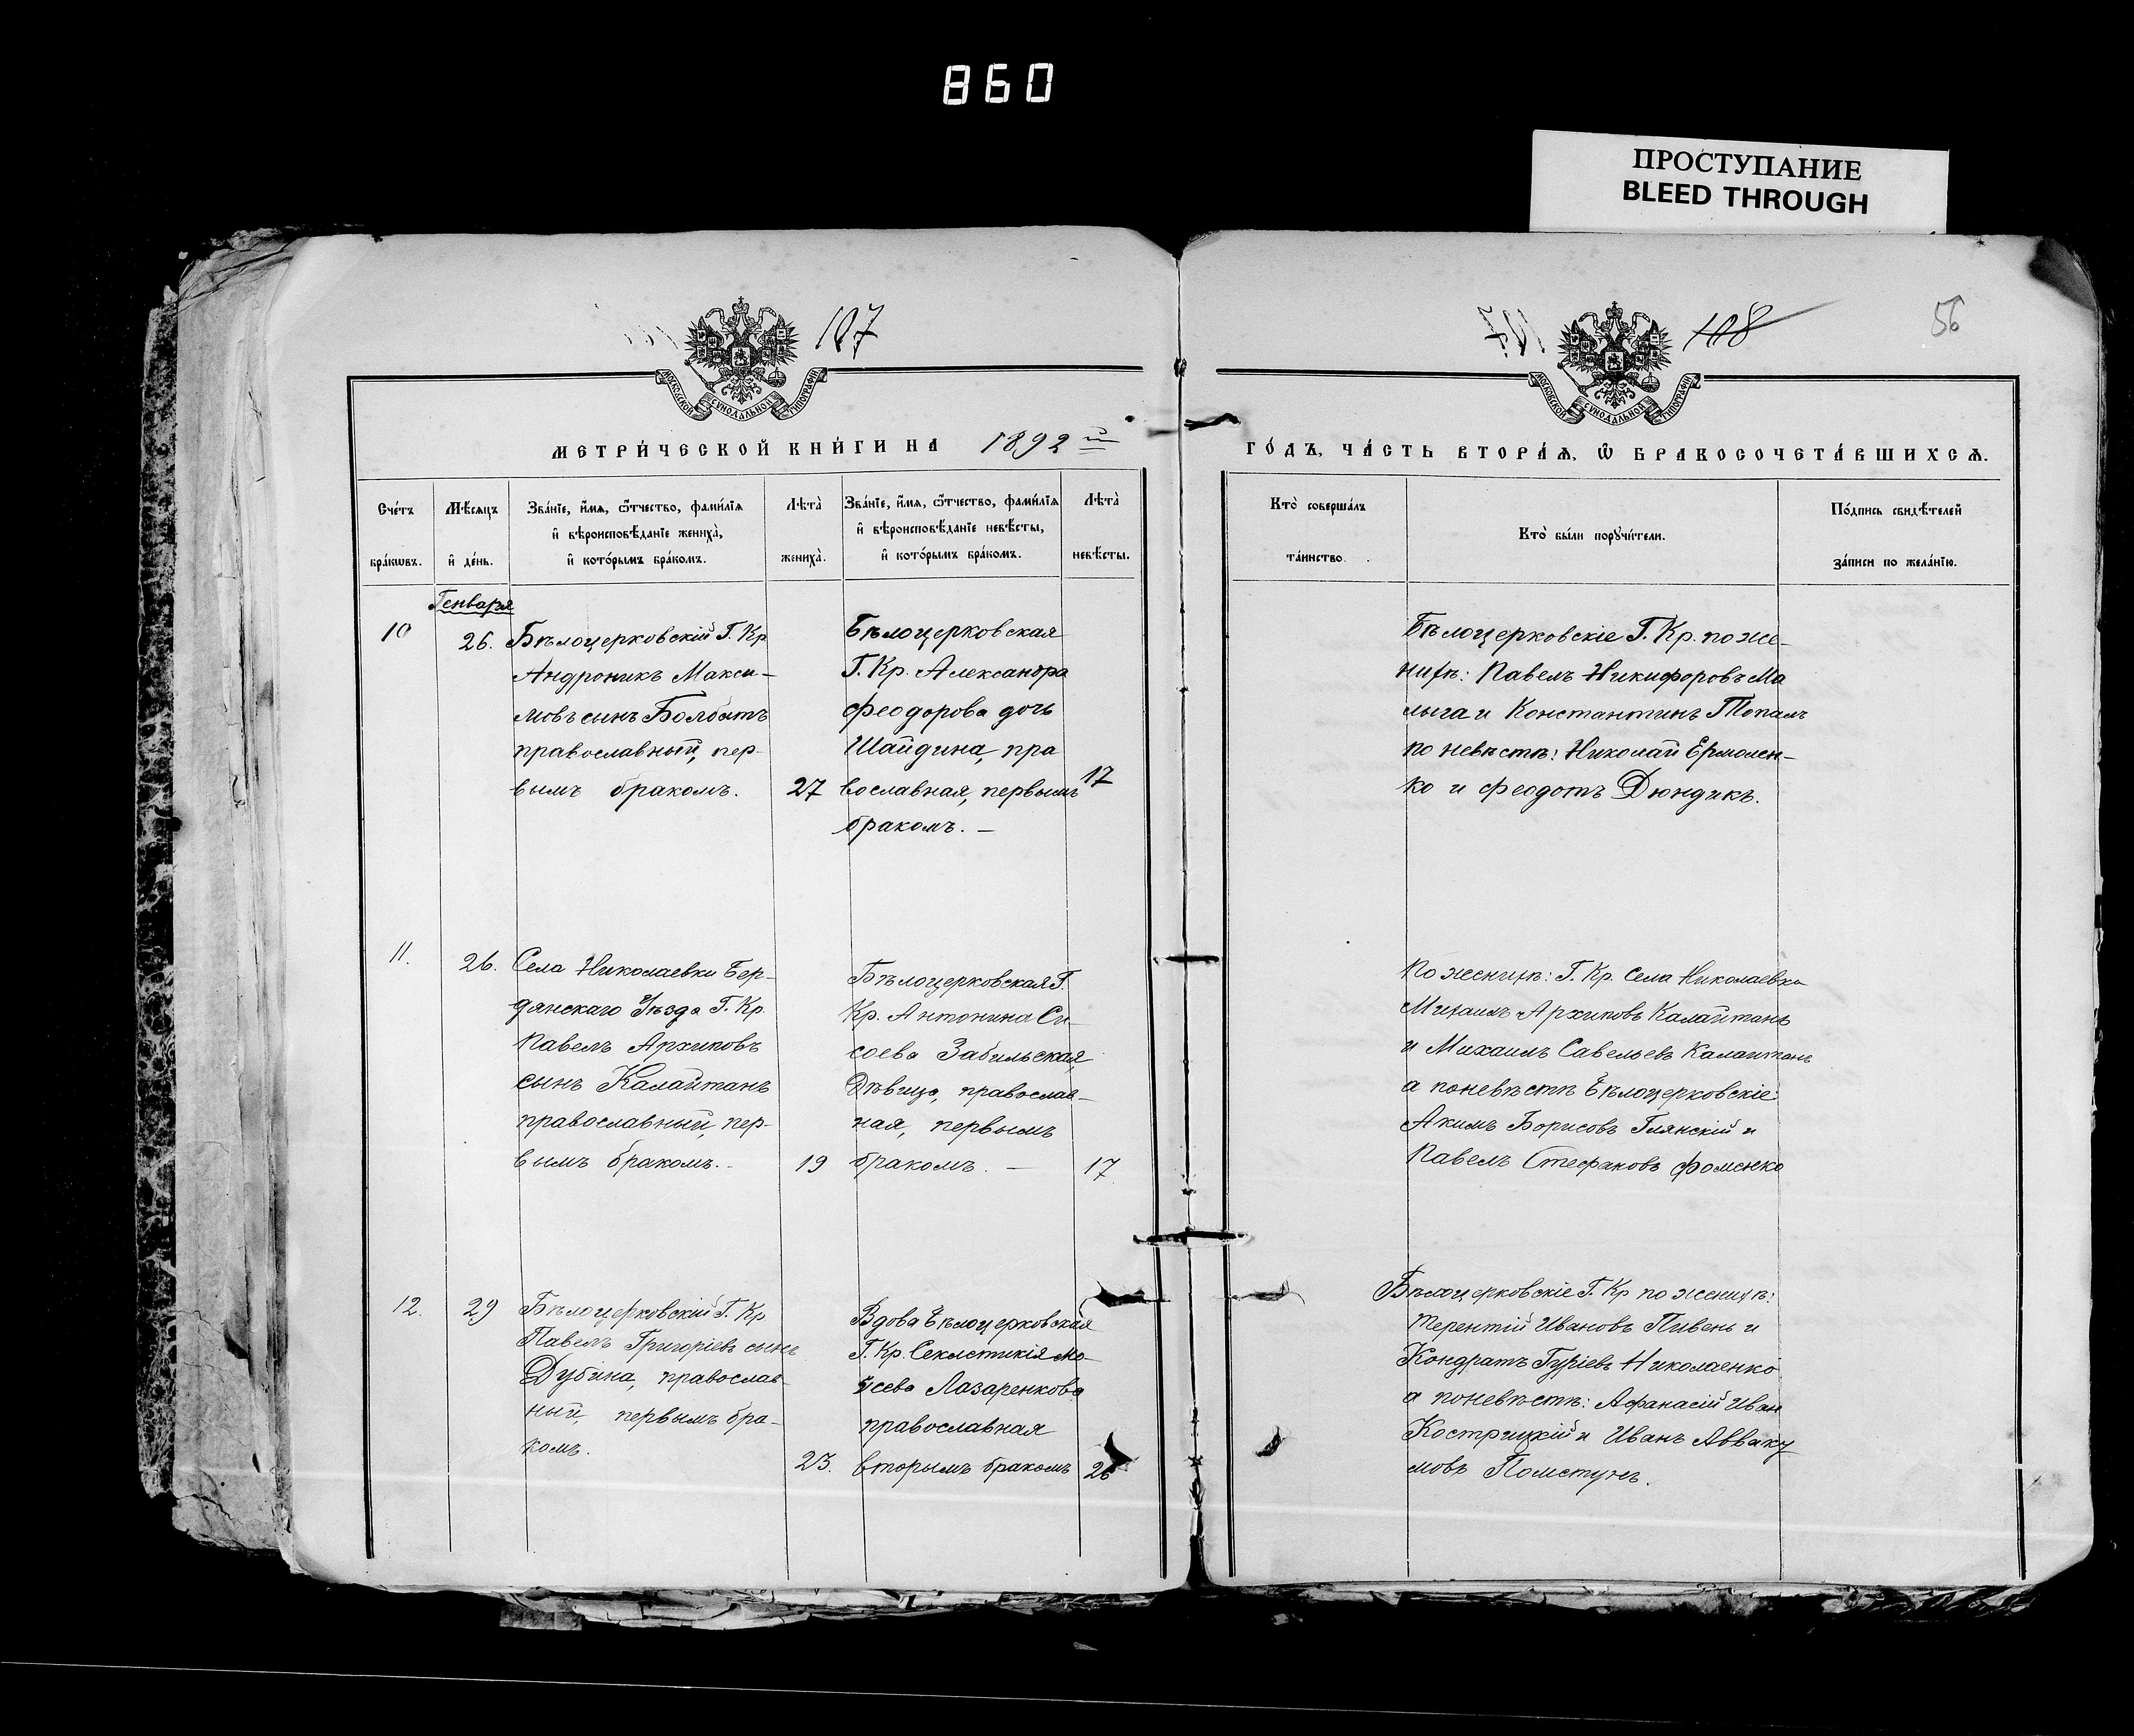 860
ПРОСТУПАНИЕ
BLEED THROUGH
107
МОСКОВСКОЙ СѴНОДАЛЬНОЙ ТИПОГРАФІИ
МЕТРИ́ЧЕСКОЙ КНИ́ГИ НА 1892 й
Сче́тъ бра́кѡвъ.
Мѣ́сяцъ и҆ де́нь.
Зва́нїе, и҆́мя, ѻ҆́тчество, фами́лїя
и҆ вѣроисповѣ́данїе жениха̀,
и҆ кото́рымъ бра́комъ.
Лѣта̀ жениха̀.
Зва́нїе, и҆́мя, ѻ҆́тчество, фами́лїя
и҆ вѣроисповѣ́данїе невѣ́сты,
и҆ кото́рымъ бра́комъ.
Лѣта̀ невѣ́сты.
Генваря
10
26.
Бѣлоцерковскій Г. Кр
Андроникъ Макси-
мовъ сынъ Болбатъ
православный, пер-
вымъ бракомъ.
27
Бѣлоцерковская
Г. Кр. Александра
Феодорова дочь
Шайдина, пра
вославная, первымъ
бракомъ. —
17
11.
26.
Села Николаевки Бер-
дянскаго Уѣзда Г. Кр.
Павелъ Архиповъ
сынъ Калайтанъ
православный, пер-
вымъ бракомъ. -
19
Бѣлоцерковская Г.
Кр. Антонина Си-
соева Забильская,
Дѣвица, православ-
ная, первымъ
бракомъ. —
17.
12.
29
Бѣлоцерковскій Г. Кр
Павелъ Григоріевъ сынъ
Дубина, православ-
ный, первымъ бра-
комъ.
23.
Вдова Бѣлоцерковская
Г. Кр. Секлетикія Мо-
ѵсева Лазаренкова
православная
вторымъ бракомъ
26
108
56
МОСКОВСКОЙ СѴНОДАЛЬНОЙ ТИПОГРАФІИ
ГО́ДЪ, ЧА́СТЬ ВТОРА́Я, Ѽ БРАКОСОЧЕТА́ВШИХСЯ.
Кто̀ соверша́лъ та́инство.
Кто̀ бы́ли порꙋчи́тели.
По́дпись свидѣ́телей
за́писи по жела́нїю.
Бѣлоцерковскіе Г. Кр. по же-
нихѣ: Павелъ Никифоровъ Ма
лыга и Константинъ Топалъ
по невѣстѣ: Николай Ермолен-
ко и Феодотъ Дюндикъ.
По женихѣ: Г. Кр. Села Николаевки
Михаилъ Архиповъ Калайтанъ
и Михаилъ Савельевъ Калаитанъ
а поневѣстѣ Бѣлоцерковскіе:
Акимъ Борисовъ Глянскій и
Павелъ Стефановъ Фоменко
Бѣлоцерковскіе Г. Кр по женихѣ:
Терентій Ивановъ Пивень и
Кондратъ Гуріевъ Николаенко
а поневѣстѣ: Афанасій Иван
Кострицкій и Иванъ Авваку
мовъ Полстунъ.